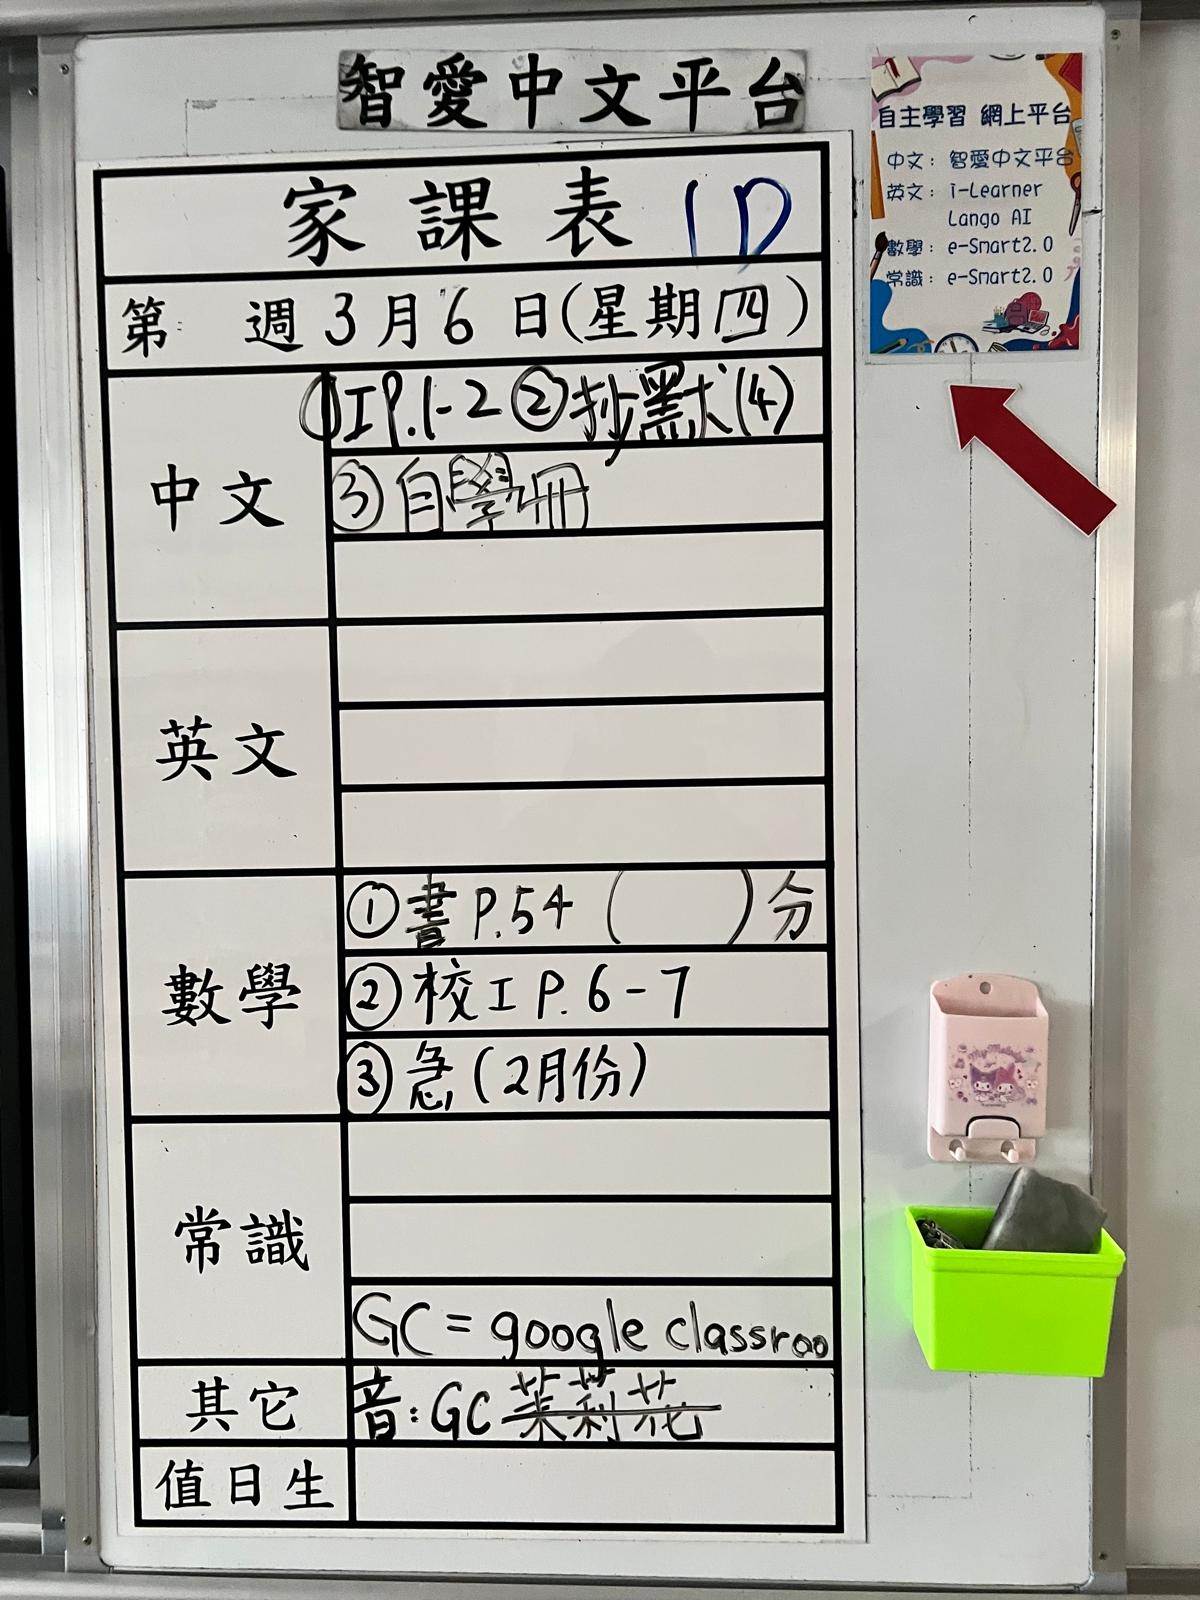 智愛中文平台
家課表 1D
第 週 3月6日(星期四)
中文
①工P.1-2 ②抄默(4)
③自學冊
英文
數學
①書 P.54 ( )分
②校工 P.6-7
③急(2月份)
常識
GC = google classroo
其它
音:GC 茉莉花
值日生
自主學習 網上平台
中文: 智愛中文平台
英文: i-Learner
Lango AI
數學: e-Smart2.0
常識: e-Smart2.0